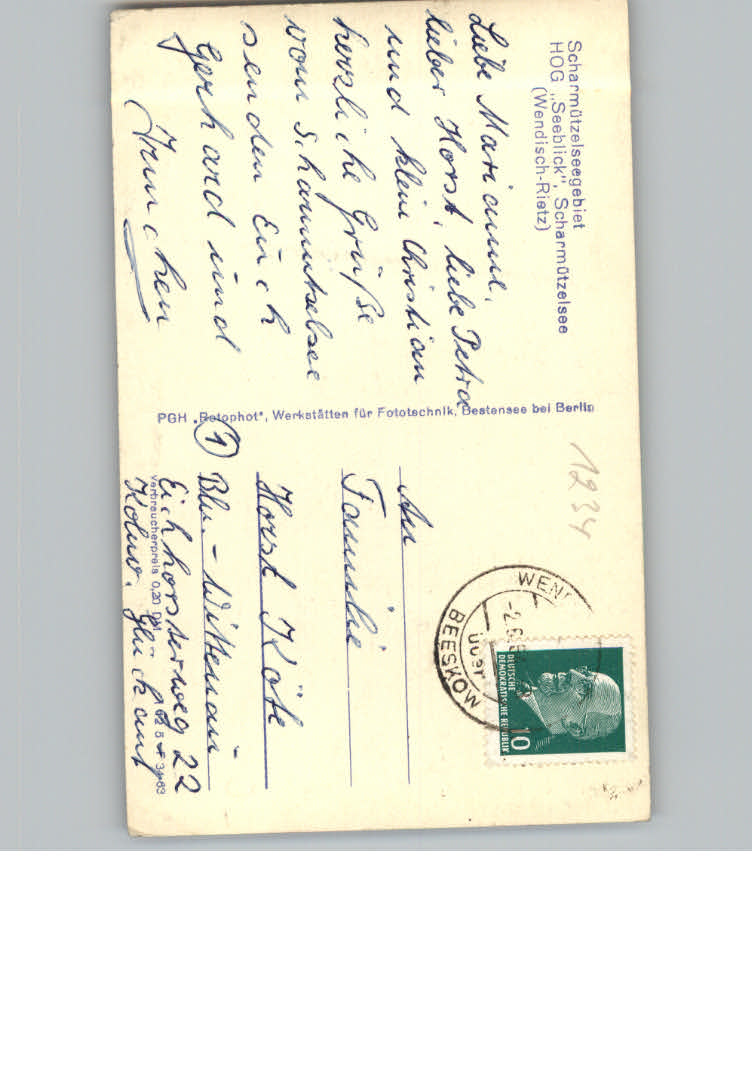 Scharmützelseegebiet
HOG „Seeblick", Scharmützelsee
(Wendisch-Rietz)
Liebe Marianne,
lieber Horst, liebe Petra
und klein Christian
herzliche Grüße
vom Scharmützelsee
senden Euch
Gerhard und
Irmchen
PGH „Rotophot", Werkstätten für Fototechnik, Bestensee bei Berlin
1234
WEN
BEESKOW
über
DEUTSCHE
DEMOKRATISCHE REPUBLIK
10
An
Familie
Horst Köte
① Bln.-Wittenau
Eichhorsterweg 22
Kolon. Glückauf
Verbraucherpreis 0,20 DM